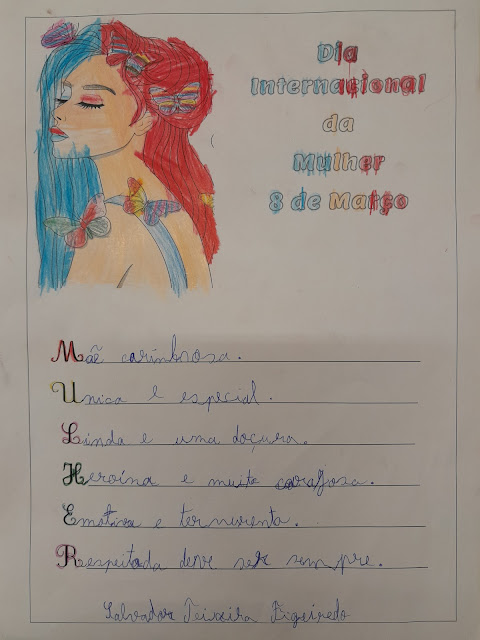 Dia
Internacional
da
Mulher
8 de Março
Mãe carinhosa.
Unica e especial.
Linda e uma doçura.
Heroína e muito corajosa.
Emotiva e ternurenta.
Respeitada deve ser sempre.
Salvador Teixeira Figueiredo